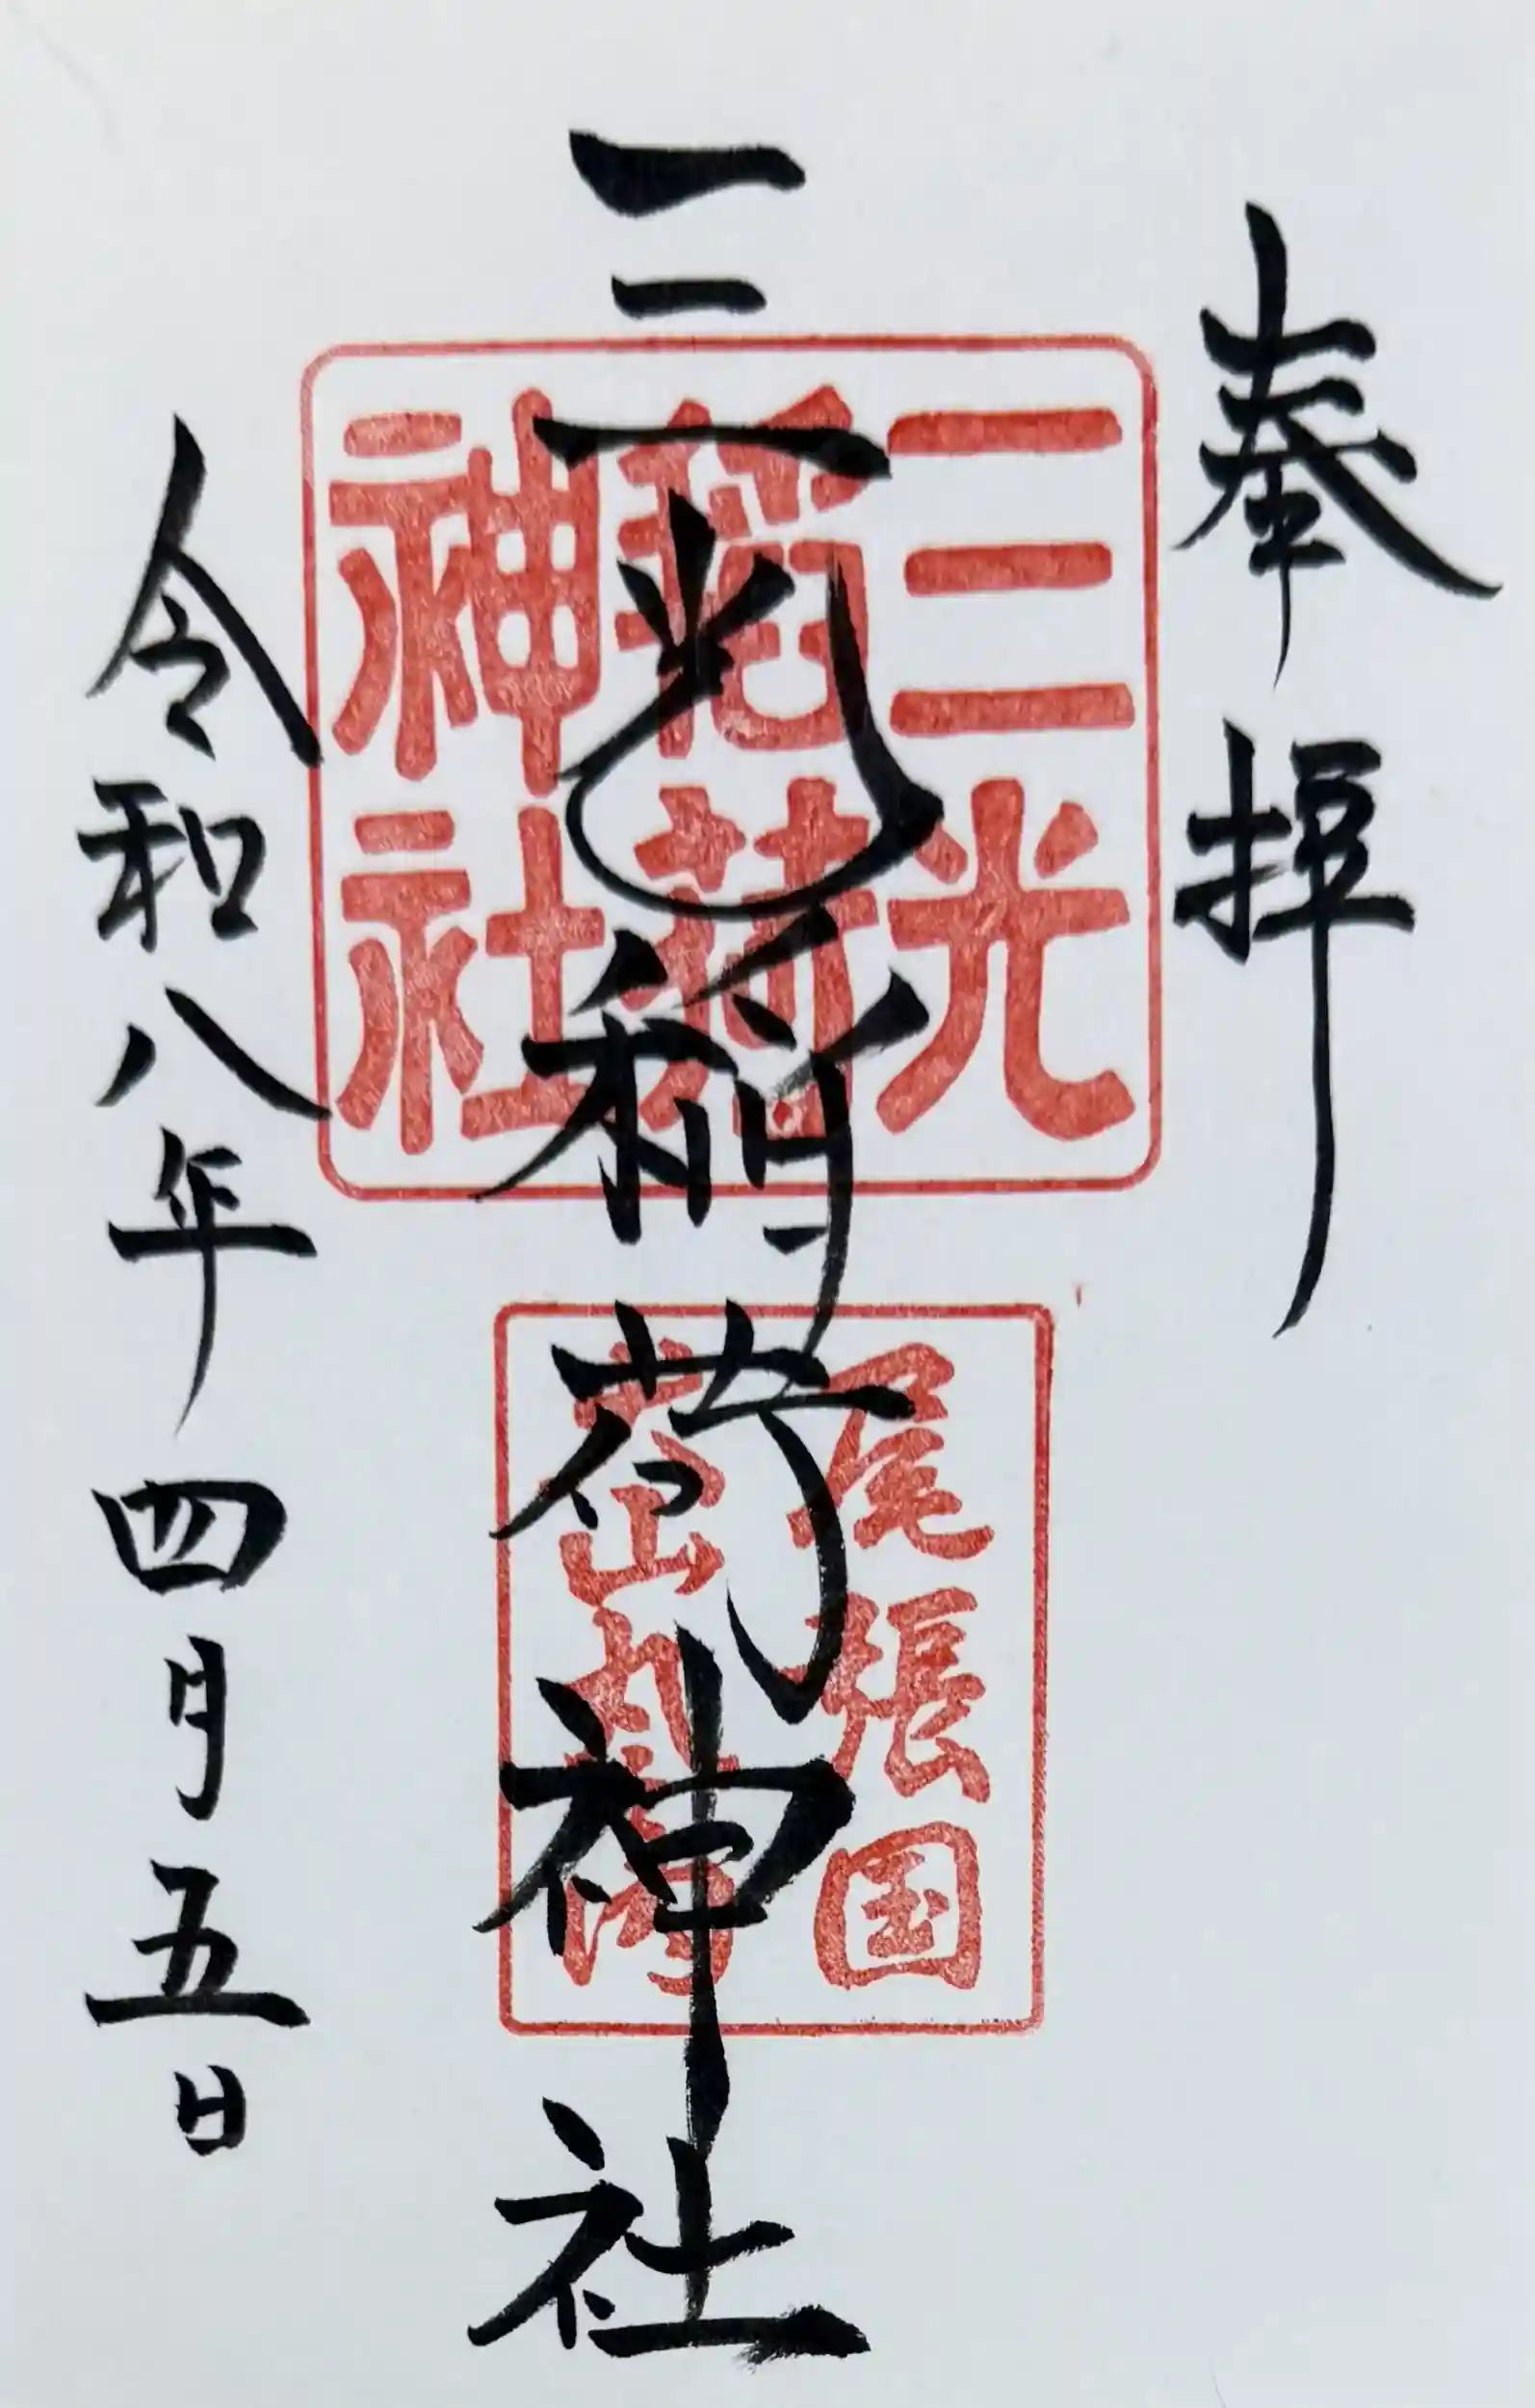 奉拝
三光稲荷神社
令和八年四月五日
三光
稲荷
神社
尾張国
犬山丸の内